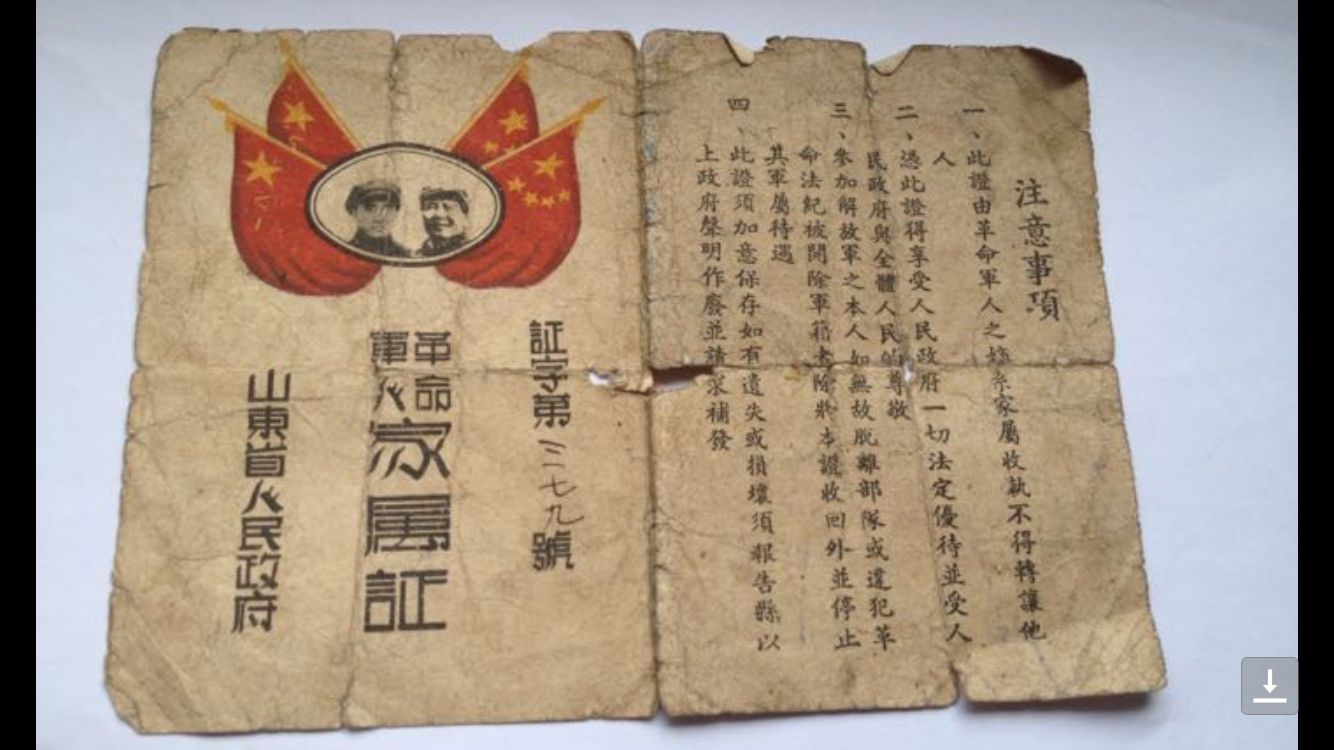 注意事項
一、此證由革命軍人之嫡系家屬收執不得轉讓他
人
二、憑此證得享受人民政府一切法定優待並受人
民政府與全體人民的尊敬
三、參加解放軍之本人如無故脫離部隊或違犯革
命法紀被開除軍籍者除將本證收回外並停止
其軍屬待遇
四、此證須加意保存如有遺失或損壞須報告縣以
上政府聲明作廢並請求補發
証字第三二七九號
革命
軍人
家屬証
山東省人民政府